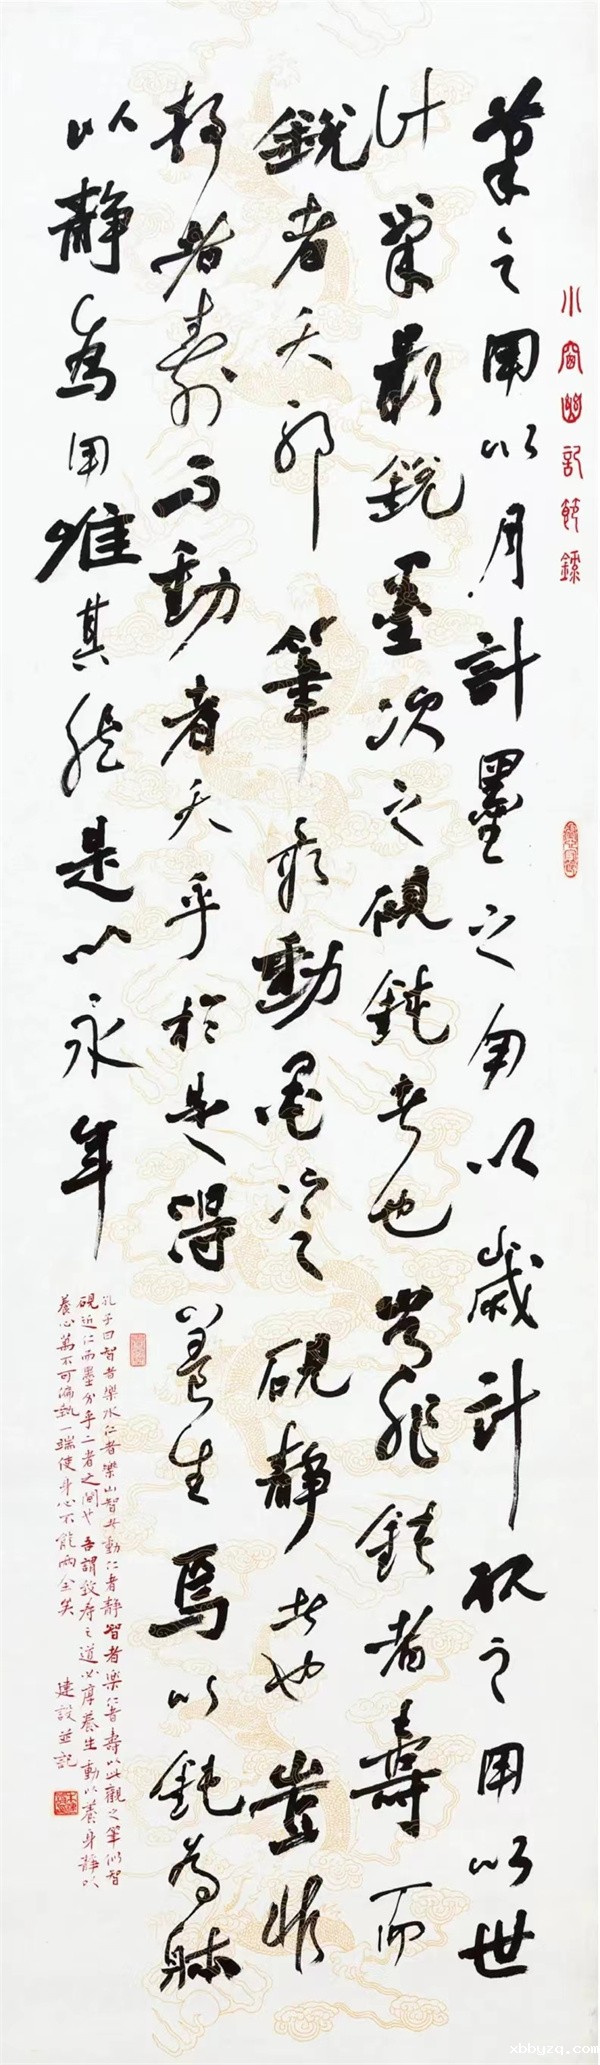 小窗幽記節錄
筆之用以月計墨之用以歲計硯之用以世
計筆最銳墨次之硯鈍者也豈非鈍者壽而
銳者夭耶筆最動墨次之硯靜者也豈非
靜者壽而動者夭乎於是得養生焉以鈍為體
以靜為用惟其然是以永年
孔子曰智者樂水仁者樂山智者動仁者靜智者樂仁者壽以此觀之筆似智
硯近仁而墨分乎二者之間也吾謂致壽之道必厚養生動以養身靜以
養心萬不可偏執一端使身心不能兩全矣
建設並記
xbbyzq.com